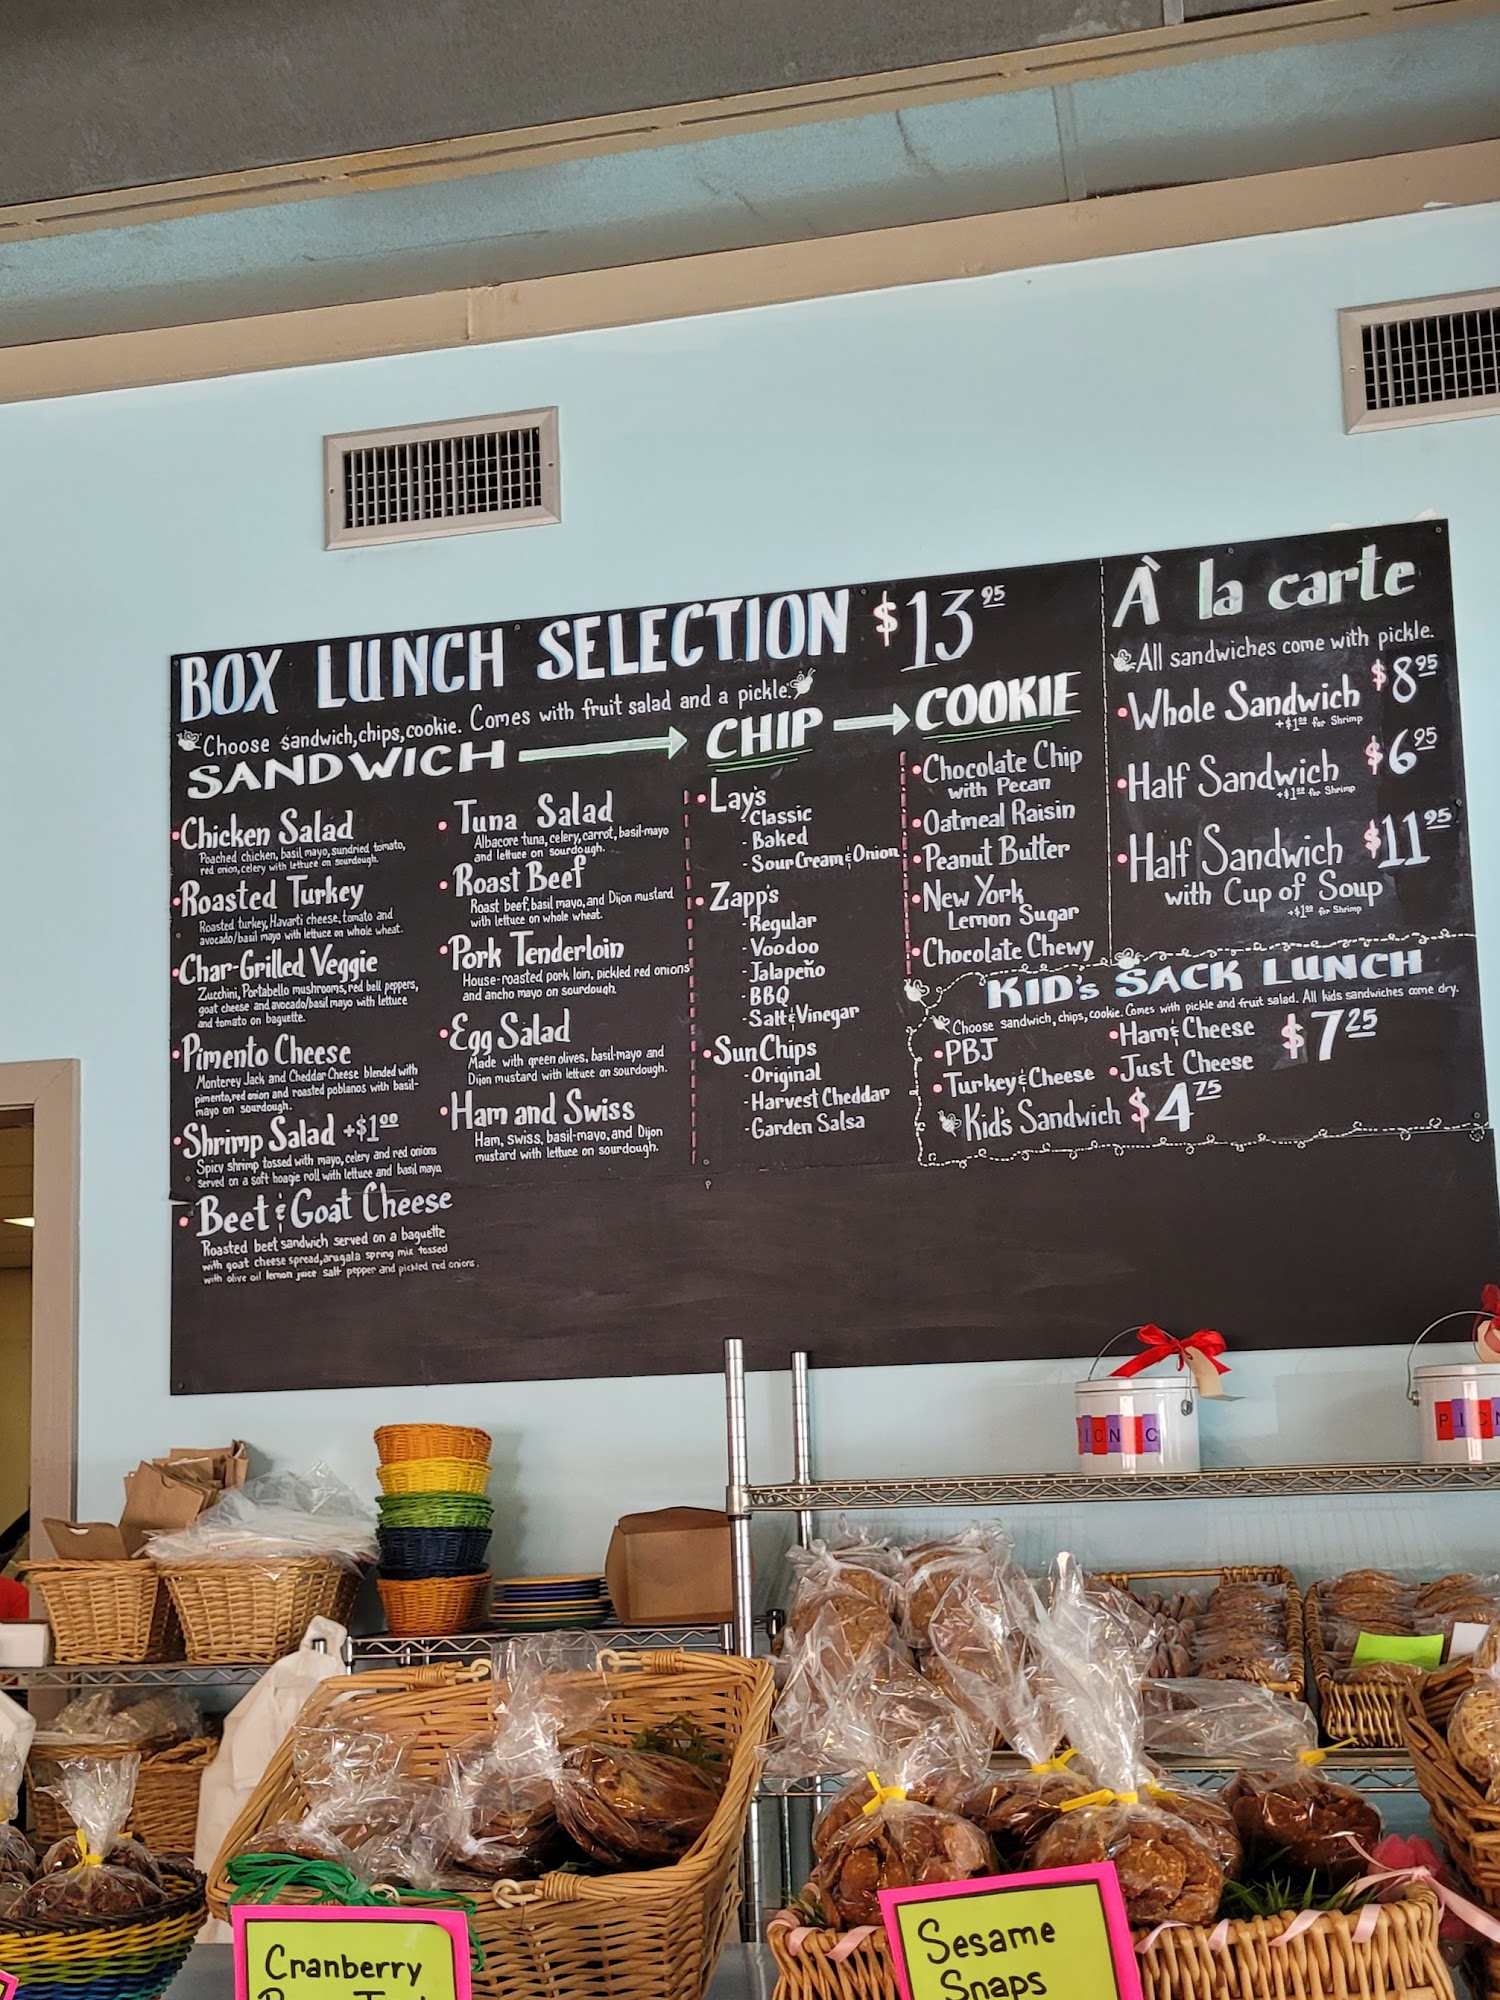 BOX LUNCH SELECTION $13.95
Choose sandwich, chips, cookie. Comes with fruit salad and a pickle.
SANDWICH
•Chicken Salad
Poached chicken, basil mayo, sundried tomato,
red onion, celery with lettuce on sourdough.
•Roasted Turkey
Roasted turkey, Havarti cheese, tomato and
avocado/basil mayo with lettuce on whole wheat.
•Char-Grilled Veggie
Zucchini, Portabello mushrooms, red bell peppers,
goat cheese and avocado/basil mayo with lettuce
and tomato on baguette.
•Pimento Cheese
Monterey Jack and Cheddar Cheese blended with
pimento, red onion and roasted poblanos with basil-
mayo on sourdough.
•Shrimp Salad +$1.00
Spicy shrimp tossed with mayo, celery and red onions
served on a soft hoagie roll with lettuce and basil mayo
•Beet & Goat Cheese
Roasted beet sandwich served on a baguette
with goat cheese spread, arugala spring mix tossed
with olive oil lemon juice salt pepper and pickled red onions.
•Tuna Salad
Albacore tuna, celery, carrot, basil-mayo
and lettuce on sourdough.
•Roast Beef
Roast beef, basil mayo, and Dijon mustard
with lettuce on whole wheat.
•Pork Tenderloin
House-roasted pork loin, pickled red onions
and ancho mayo on sourdough.
•Egg Salad
Made with green olives, basil-mayo and
Dijon mustard with lettuce on sourdough.
•Ham and Swiss
Ham, swiss, basil-mayo, and Dijon
mustard with lettuce on sourdough.
CHIP
•Lay's
-Classic
-Baked
-Sour Cream & Onion
•Zapp's
-Regular
-Voodoo
-Jalapeño
-BBQ
-Salt & Vinegar
•Sun Chips
-Original
-Harvest Cheddar
-Garden Salsa
COOKIE
•Chocolate Chip
with Pecan
•Oatmeal Raisin
•Peanut Butter
•New York
Lemon Sugar
•Chocolate Chewy
À la carte
All sandwiches come with pickle.
•Whole Sandwich $8.95
+$1.00 for Shrimp
•Half Sandwich $6.95
+$1.00 for Shrimp
•Half Sandwich $11.95
with Cup of Soup
+$1.00 for Shrimp
KID's SACK LUNCH
Choose sandwich, chips, cookie. Comes with pickle and fruit salad. All kids sandwiches come dry.
•PBJ
•Turkey & Cheese
•Ham & Cheese
•Just Cheese
$7.25
Kid's Sandwich $4.75
PICNIC
PICN
Cranberry
Sesame
Snaps